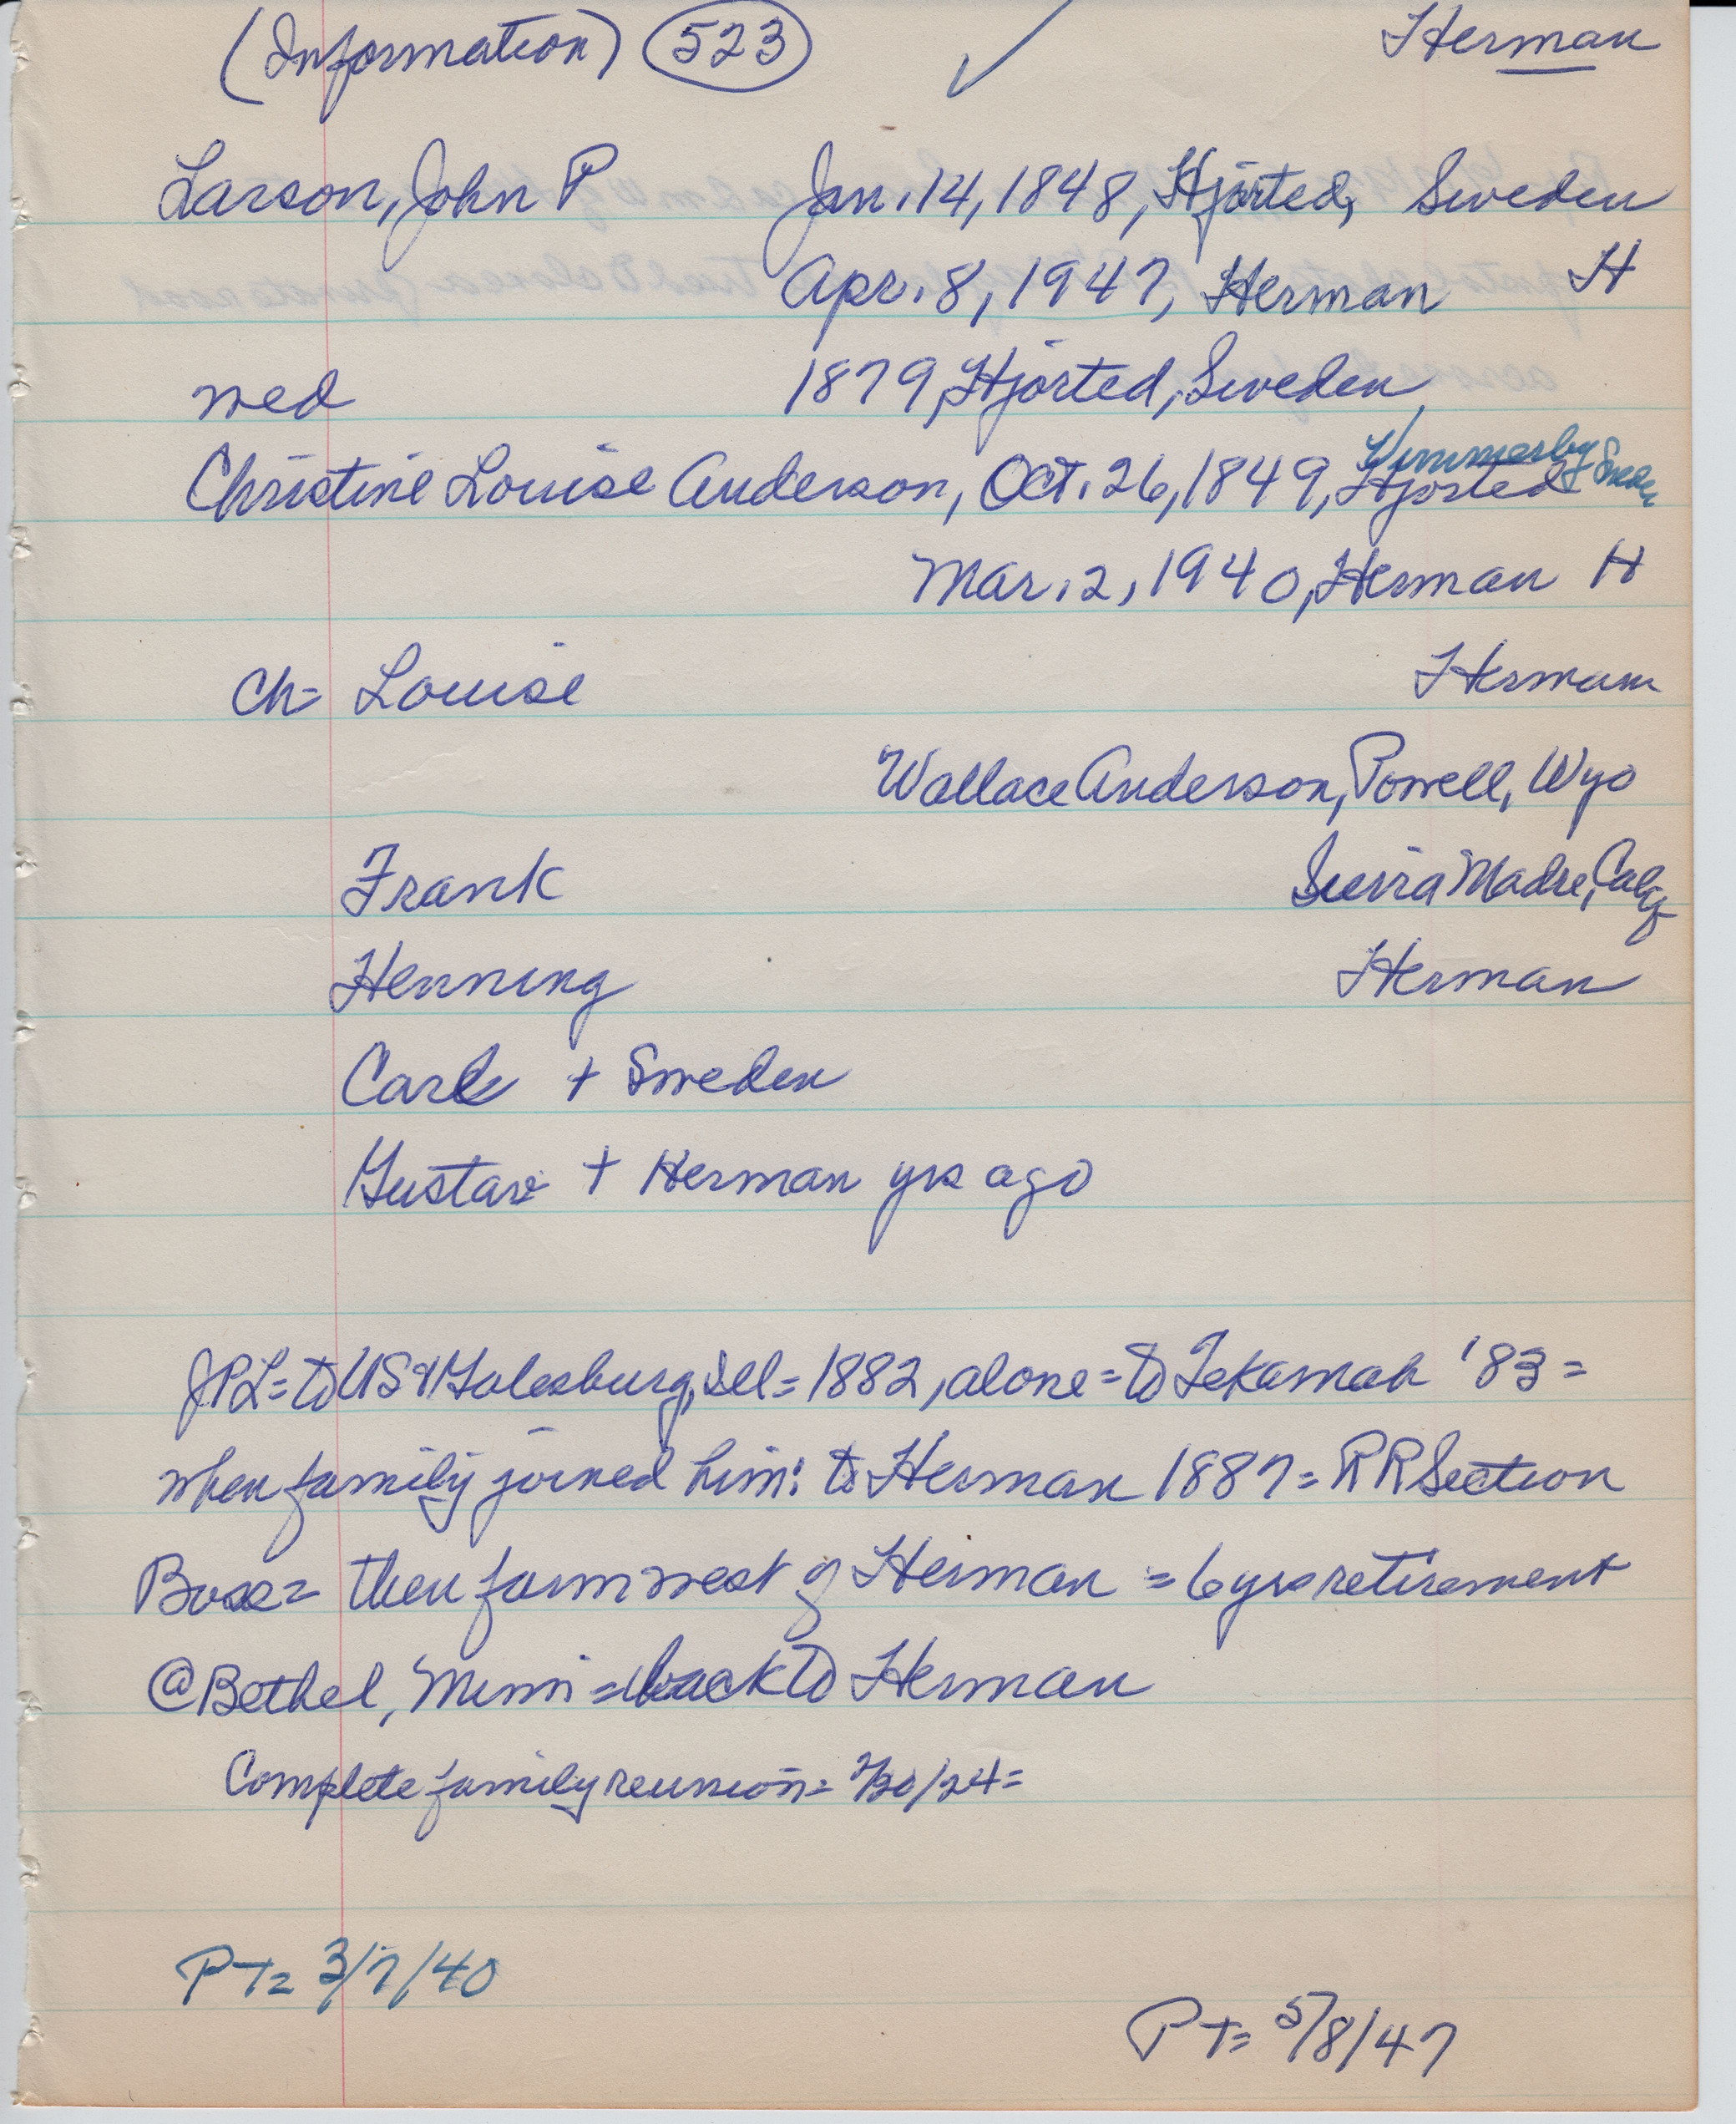 (Information) 523 ✓ Herman
Larson, John P Jan. 14, 1848, Hjorted, Sweden
Apr. 8, 1947, Herman H
wed 1879, Hjorted, Sweden
Vimmerby Sweden
Christine Louise Anderson, Oct. 26, 1849, Hjorted
Mar. 2, 1940, Herman H
Ch= Louise Herman
Wallace Anderson, Powell, Wyo
Frank Sierra Madre, Calif
Henning Herman
Carl + Sweden
Gustav + Herman yrs ago
JPL= to US & Galesburg, Ill= 1882, alone= to Tekamah '83=
when family joined him: to Herman 1887= RR Section
Boss= then farm west of Herman = 6 yrs retirement
@ Bethel, Minn = back to Herman
Complete family reunion= /20/24=
PT= 3/7/40
PT= 5/8/47